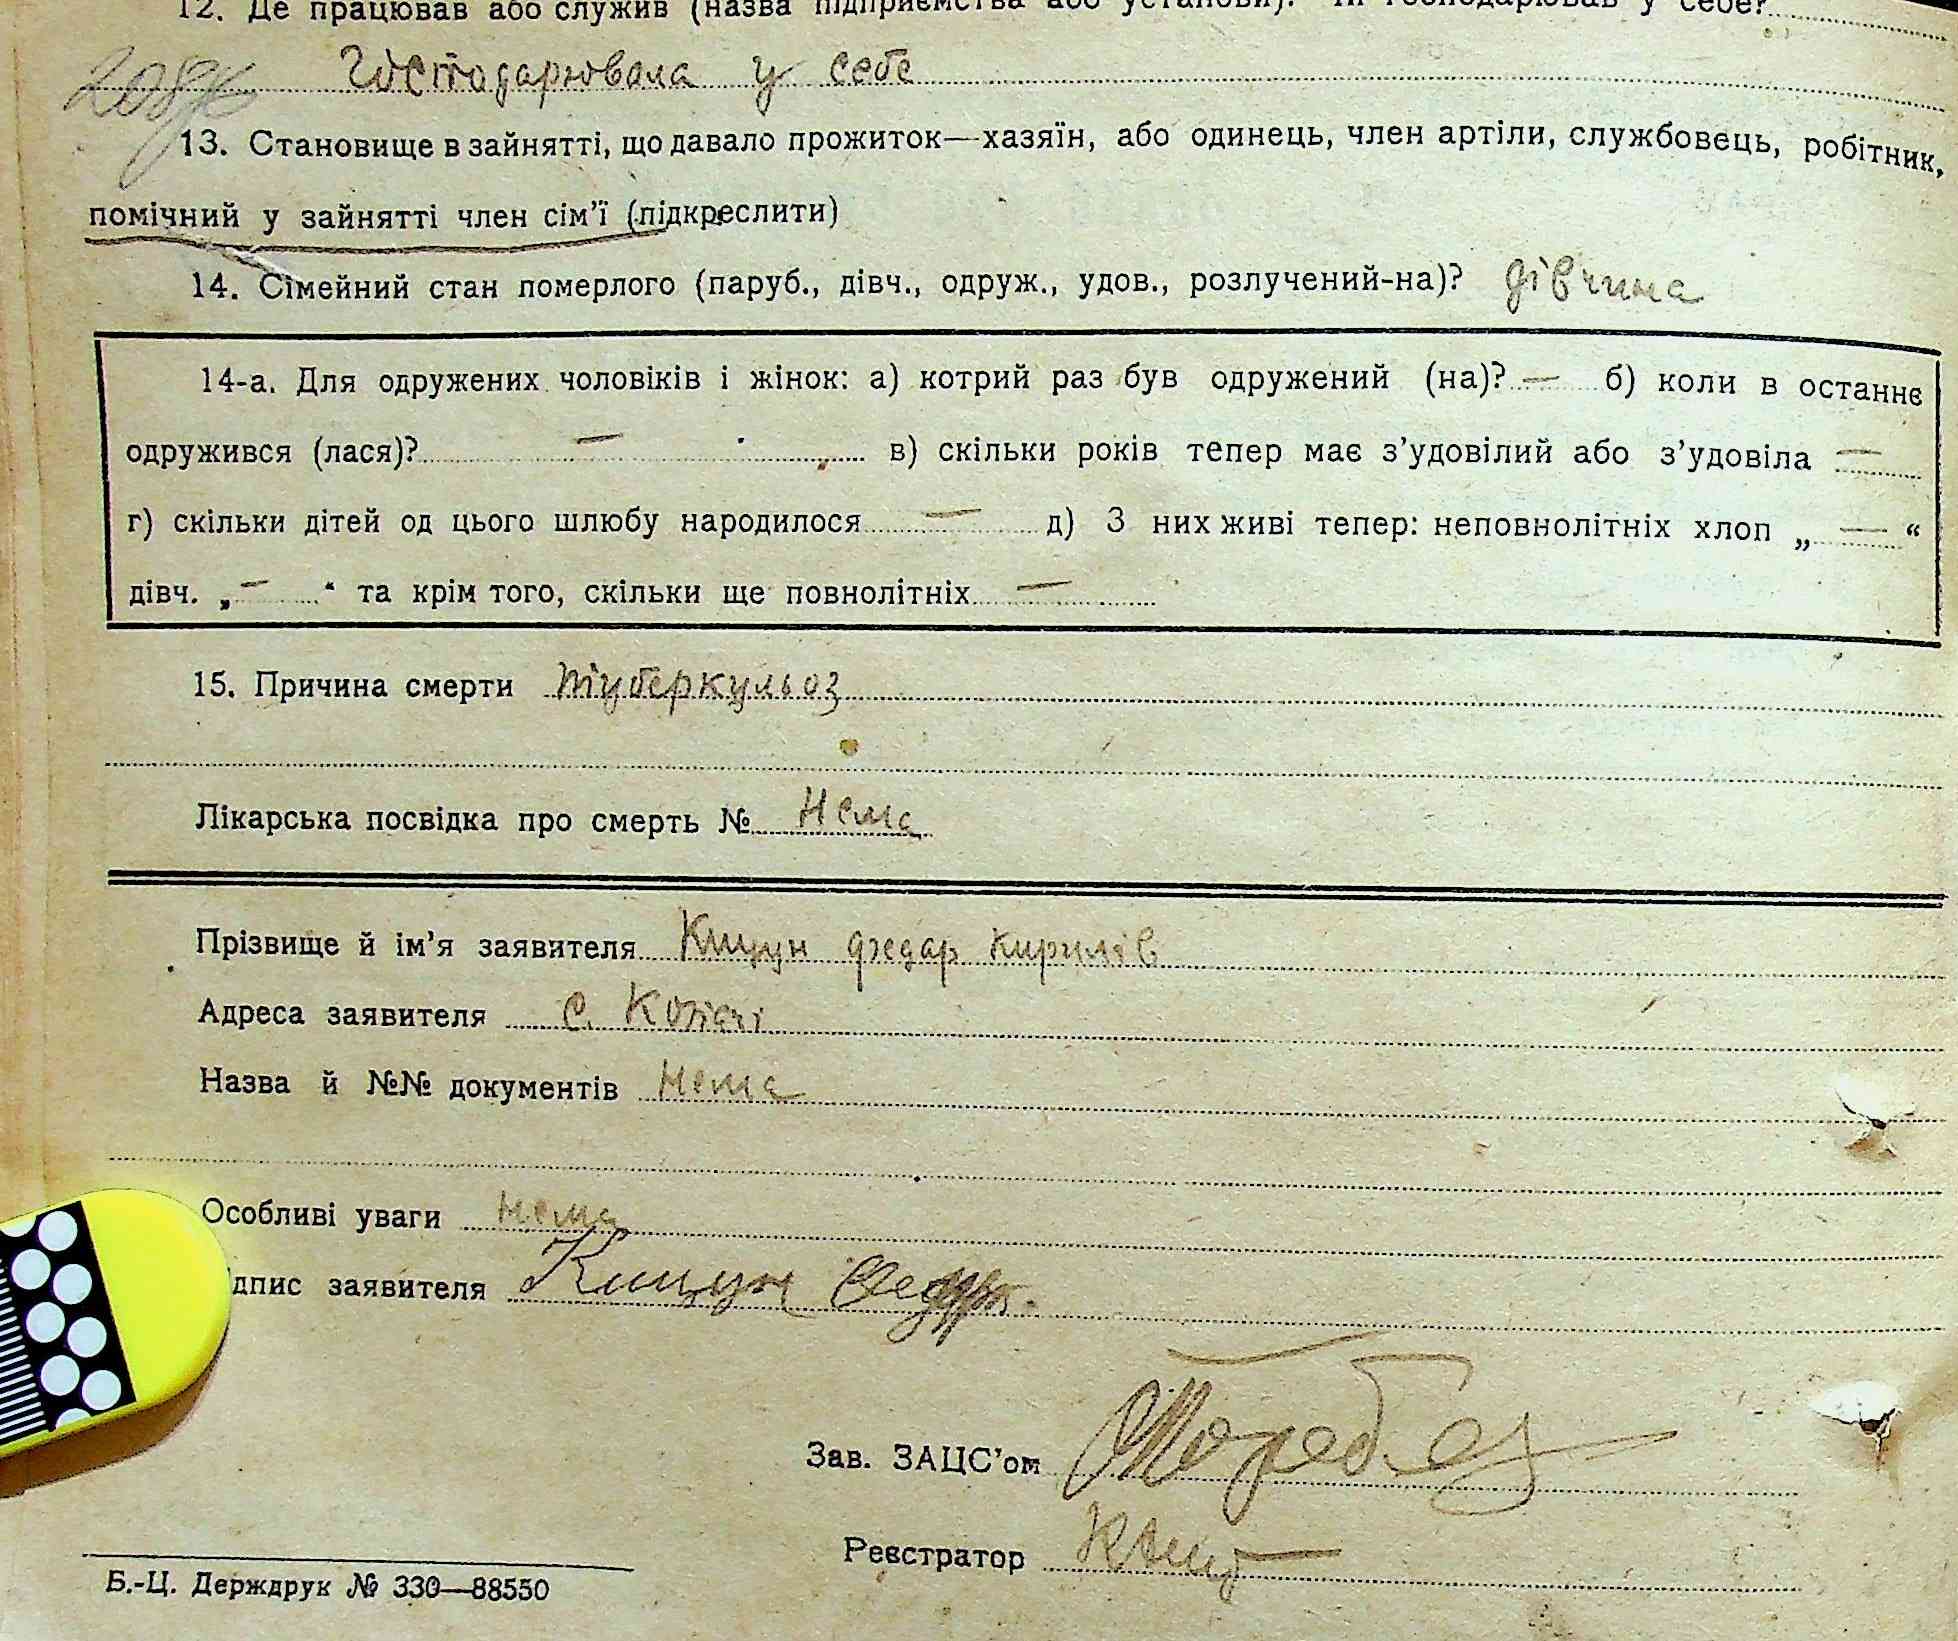 12. Де працював або служив (назва підприємства або установи). Чи господарював у себе?
Господарювала у себе
13. Становище в зайнятті, що давало прожиток—хазяїн, або одинець, член артіли, службовець, робітник,
помічний у зайнятті член сім'ї (підкреслити)
14. Сімейний стан померлого (паруб., дівч., одруж., удов., розлучений-на)? дівчина
14-а. Для одружених чоловіків і жінок: а) котрий раз був одружений (на)? — б) коли в останнє
одружився (лася)? — в) скільки років тепер має з'удовілий або з'удовіла —
г) скільки дітей од цього шлюбу народилося — д) З них живі тепер: неповнолітніх хлоп „ — “
дівч. „ — “ та крім того, скільки ще повнолітніх —
15. Причина смерти туберкульоз
Лікарська посвідка про смерть № Нема
Прізвище й ім'я заявителя Кицун федар Кирилів
Адреса заявителя с. Копачі
Назва й №№ документів нема
Особливі уваги нема
дпис заявителя Кицун
Зав. ЗАЦС'ом
Реєстратор
Б.-Ц. Держдрук № 330—88550